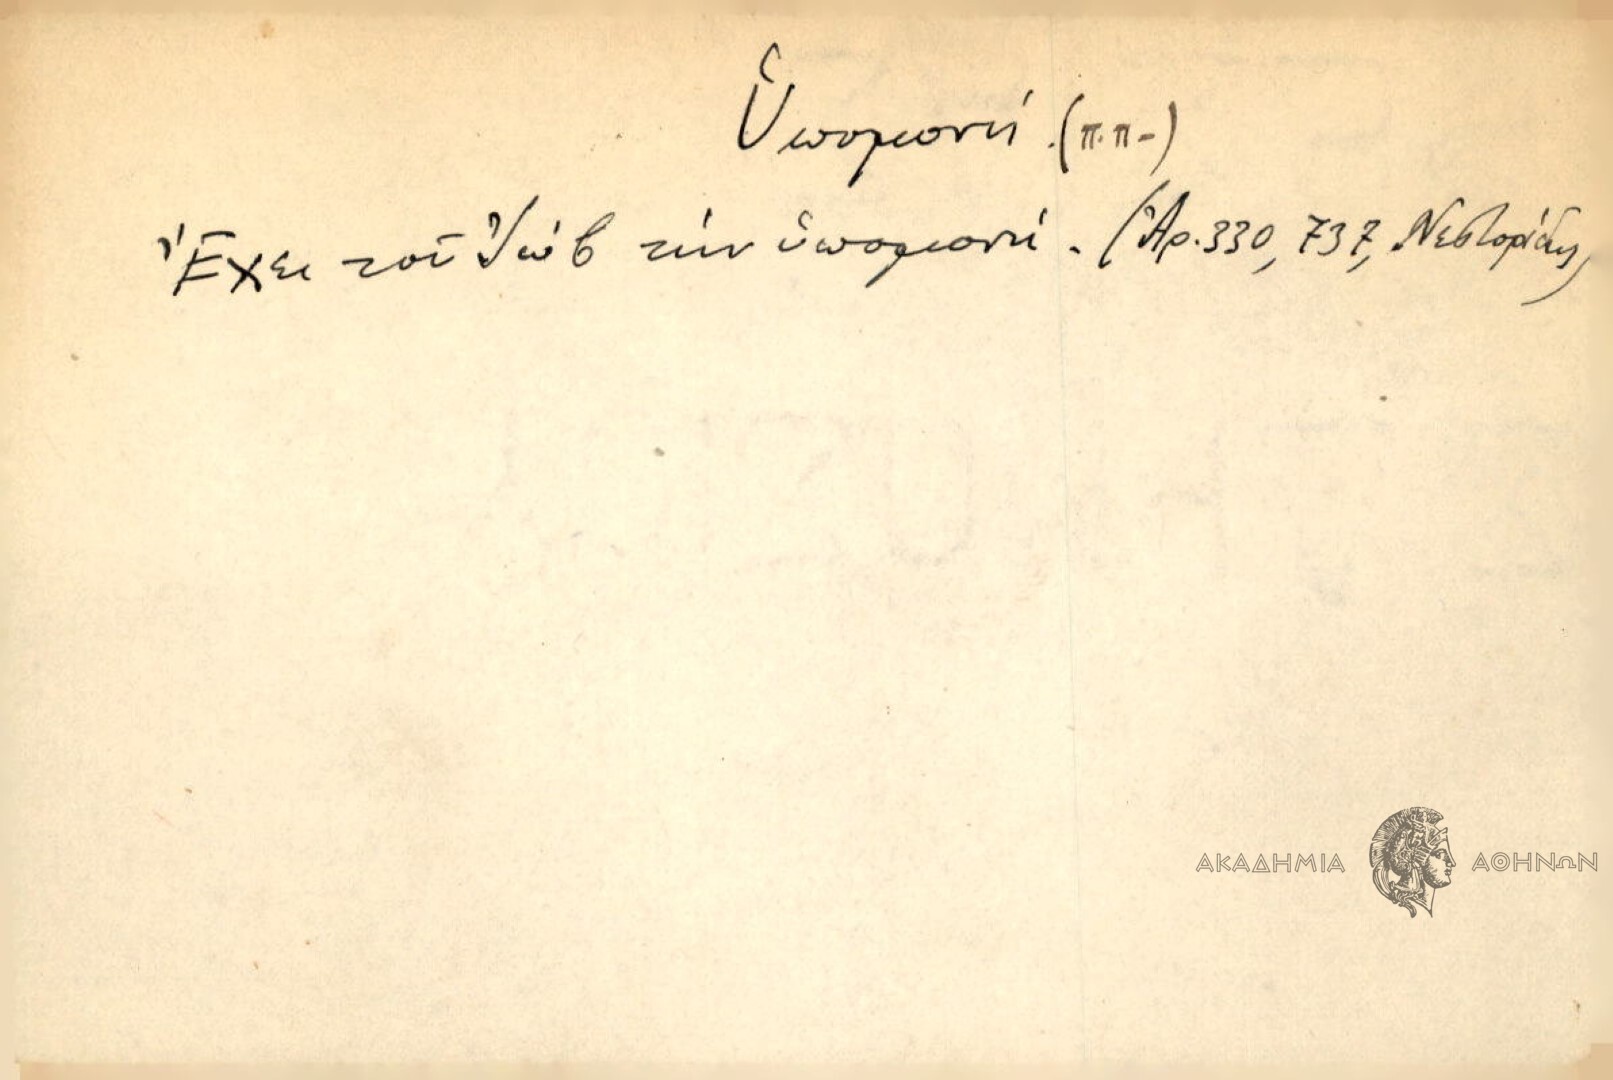 Ὑπομονή. (π.π-)
Ἔχει τοῦ Ἰώβ τήν ὑπομονή. (Ἀρ. 330, 737, Νεστορίδης,
ΑΚΑΔΗΜΙΑ ΑΘΗΝΩΝ